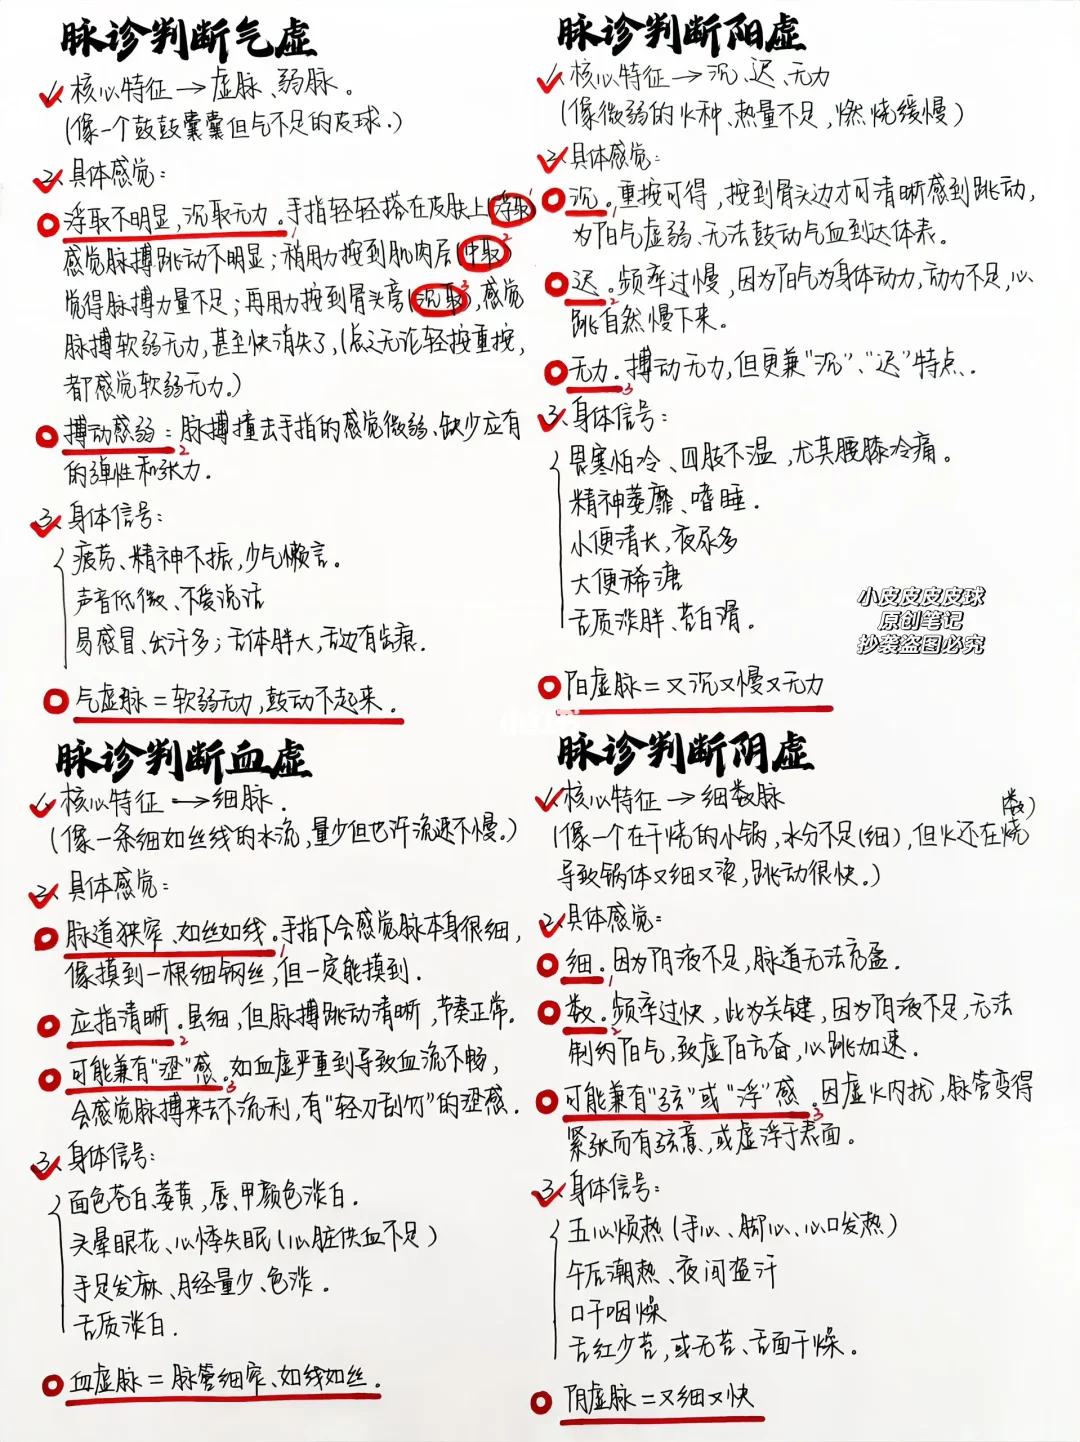 脉诊判断气虚
1、核心特征→虚脉、弱脉。
(像一个鼓鼓囊囊但气不足的皮球.)
2、具体感觉:
浮取不明显,沉取无力。手指轻轻搭在皮肤上(浮取)
1
感觉脉搏跳动不明显;稍用力按到肌肉层(中取)
2
觉得脉搏力量不足;再用力按到骨头旁(沉取),感觉
3
脉搏软弱无力,甚至快消失了,(总之无论轻按重按,
都感觉软弱无力.)
搏动感弱:脉搏撞击手指的感觉微弱、缺少应有
2
的弹性和张力.
3、身体信号:
疲劳、精神不振,少气懒言。
声音低微、不爱说话
易感冒、出汗多;舌体胖大,舌边有齿痕.
气虚脉=软弱无力,鼓动不起来.
脉诊判断阳虚
1、核心特征→沉、迟、无力
(像微弱的火种、热量不足,燃烧缓慢)
2、具体感觉:
沉。重按可得,按到骨头边才可清晰感到跳动,
1
为阳气虚弱、无法鼓动气血到达体表。
迟。频率过慢,因为阳气为身体动力,动力不足,心
2
跳自然慢下来。
无力.搏动无力,但更兼“沉”、“迟”特点.
3
3、身体信号:
畏寒怕冷、四肢不温,尤其腰膝冷痛。
精神萎靡、嗜睡.
小便清长,夜尿多
大便稀溏
舌质淡胖、苔白滑.
小皮皮皮皮球
原创笔记
抄袭盗图必究
阳虚脉=又沉又慢又无力
脉诊判断血虚
1、核心特征→细脉.
(像一条细如丝线的水流,量少但也许流速不慢。)
2、具体感觉:
脉道狭窄、如丝如线。手指下会感觉脉本身很细,
1
像摸到一根细钢丝,但一定能摸到.
应指清晰.虽细,但脉搏跳动清晰,节奏正常.
2
可能兼有“涩”感.如血虚严重到导致血流不畅,
3
会感觉脉搏来去不流利,有“轻刀刮竹”的涩感.
3、身体信号:
面色苍白萎黄,唇、甲颜色淡白.
头晕眼花、心悸失眠(心脏供血不足)
手足发麻、月经量少、色淡.
舌质淡白.
血虚脉=脉管细窄、如线如丝.
脉诊判断阴虚
1、核心特征→细数脉
(像一个在干烧的小锅,水分不足(细),但火还在烧
(数)
导致锅体又细又烫,跳动很快。)
2、具体感觉:
细.因为阴液不足,脉道无法充盈.
1
数.频率过快,此为关键,因为阴液不足,无法
2
制约阳气,致虚阳亢奋,心跳加速.
可能兼有“弦”或“浮”感.因虚火内扰,脉管变得
3
紧张而有弦意,或虚浮于表面。
3、身体信号:
五心烦热(手心、脚心、心口发热)
午后潮热、夜间盗汗
口干咽燥
舌红少苔,或无苔、舌面干燥。
阴虚脉=又细又快